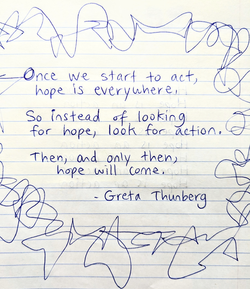 Once we start to act,
hope is everywhere.
So instead of looking
for hope, look for action.
Then, and only then,
hope will come.
- Greta Thunberg